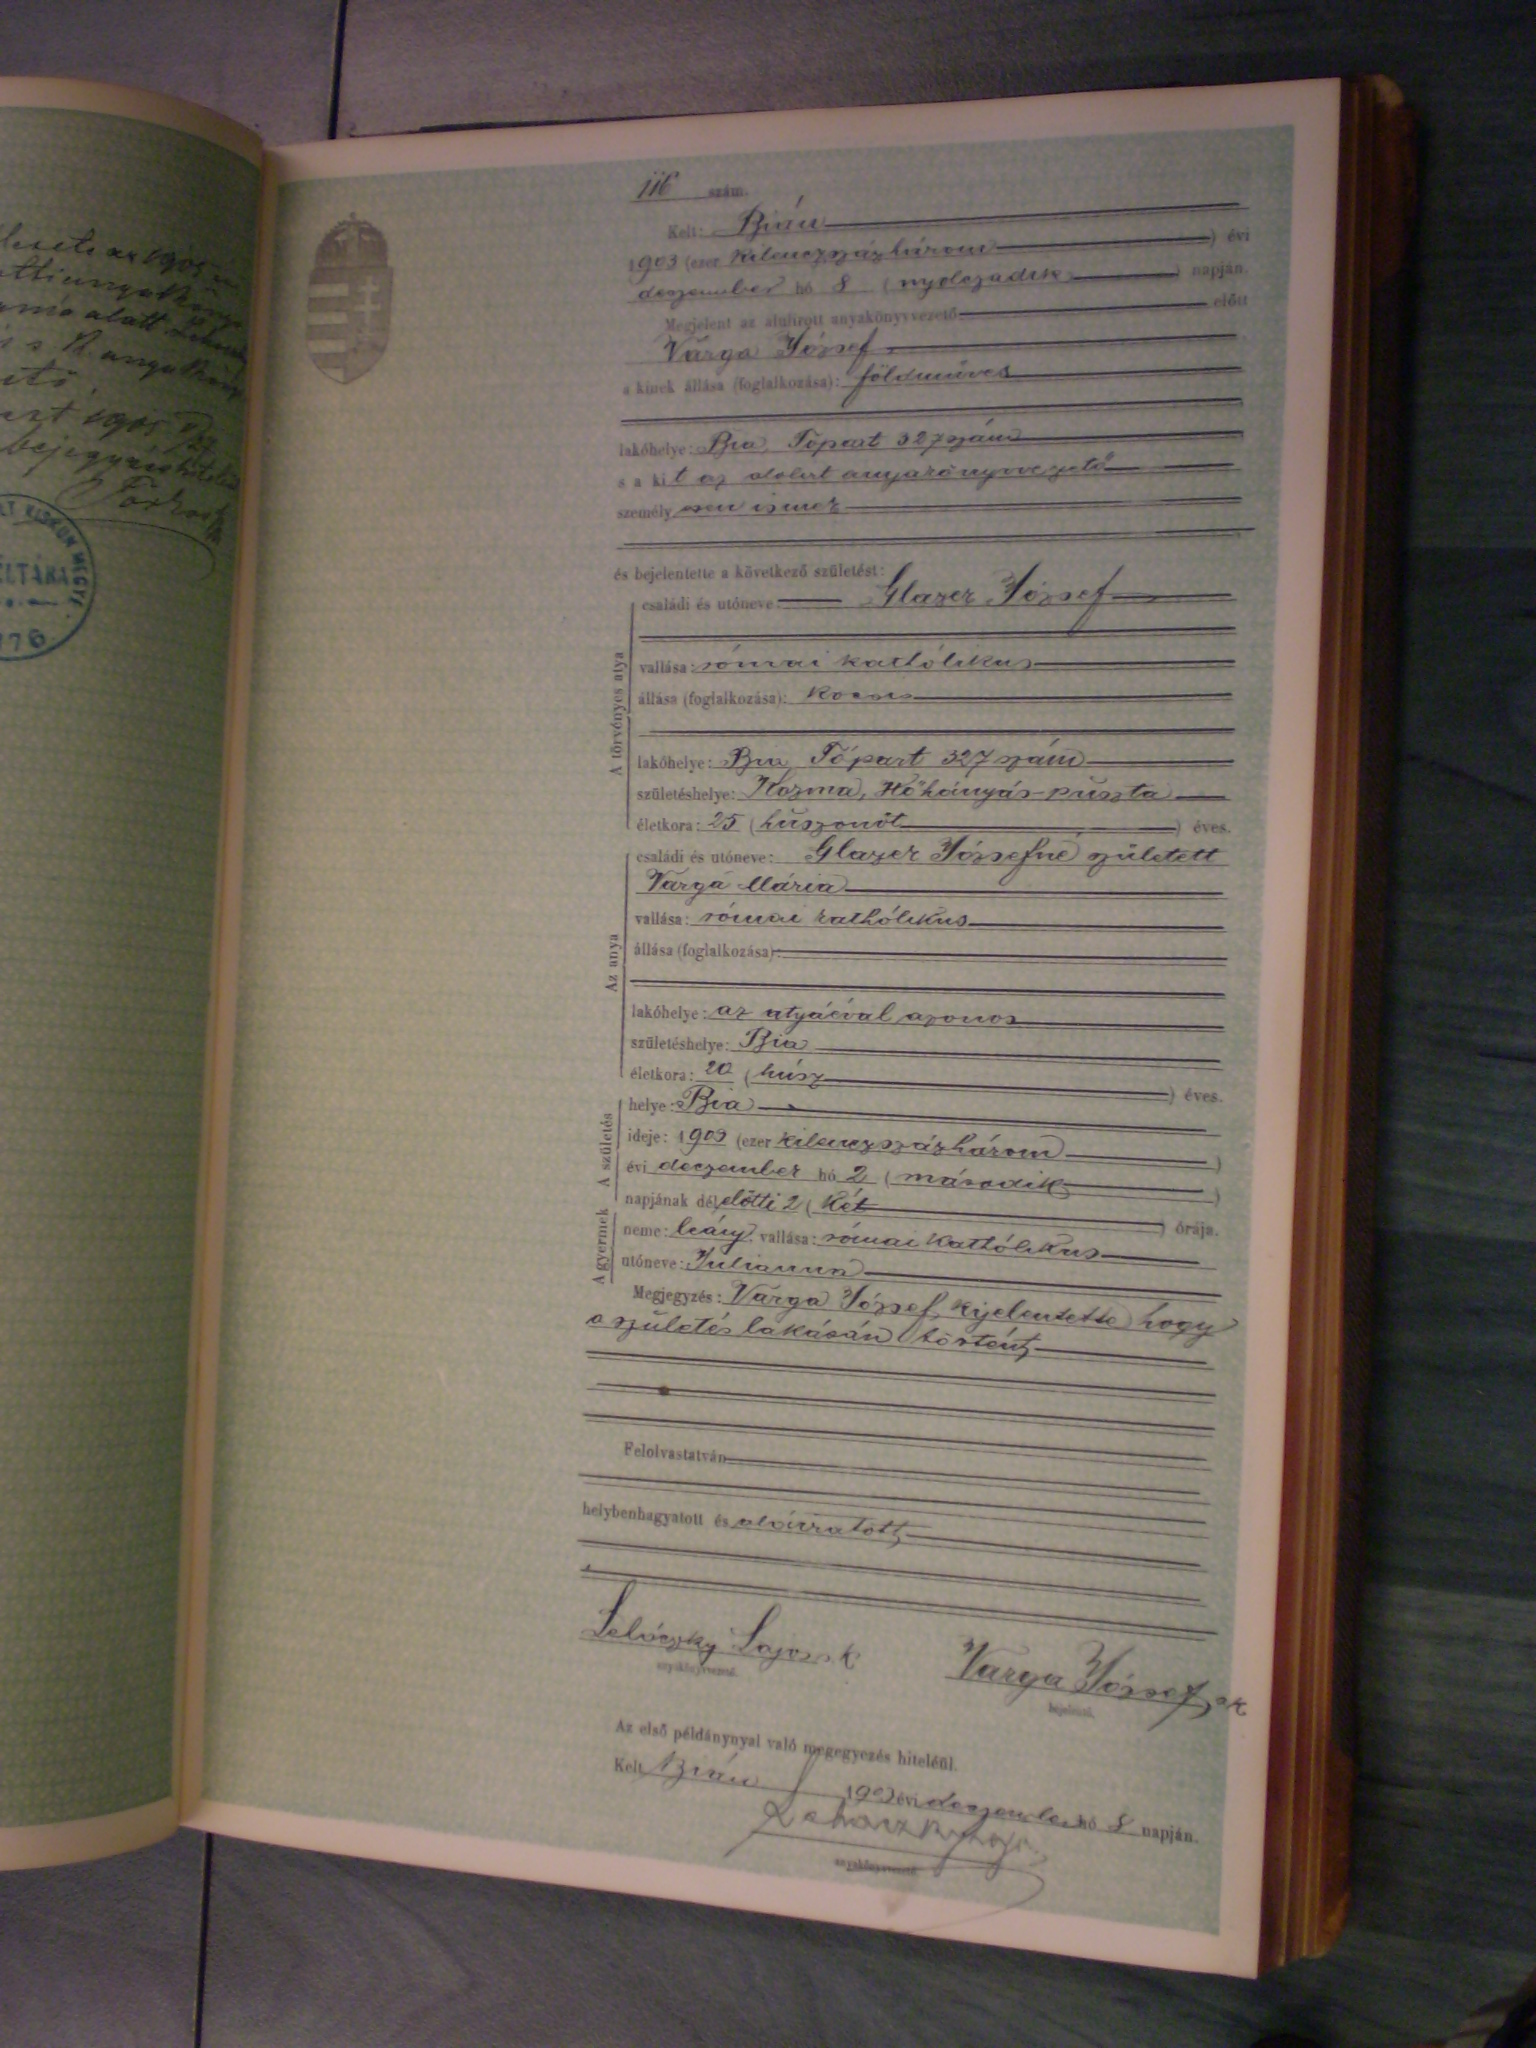 116 szám.
Kelt: Bián
1903 (ezer kilenczszázhárom) évi
deczember hó 8 (nyolczadik) napján.
Megjelent az alulirott anyakönyvvezető előtt
Varga József
a kinek állása (foglalkozása): földműves
lakóhelye: Bia, Tópart 327 szám
s a kit az alólirt anyakönyvvezető
személyesen ismer
és bejelentette a következő születést:
A törvényes atya
családi és utóneve Glazer József
vallása: római kathólikus
állása (foglalkozása): kocsis
lakóhelye: Bia, Tópart 327 szám
születéshelye: Kozma, Hőhányás-puszta
életkora: 25 (huszonöt) éves.
Az anya
családi és utóneve: Glazer Józsefné született
Varga Mária
vallása: római kathólikus
állása (foglalkozása):
lakóhelye: az atyáéval azonos
születéshelye: Bia
életkora: 20 (húsz) éves.
A születés
helye: Bia
ideje: 1903 (ezer kilenczszázhárom)
évi deczember hó 2 (második)
napjának délelőtti 2 (két) órája.
A gyermek
neme: leány vallása: római kathólikus
utóneve: Julianna
Megjegyzés: Varga József kijelentette hogy
a születés lakásán történt
Felolvastatván
helybenhagyatott és aláiratott
Lajos sk
anyakönyvvezető.
Varga József sk
bejelentő.
Az első példánynyal való megegyezés hiteléül.
Kelt Bián 1903 évi deczember hó 8 napján.
anyakönyvvezető